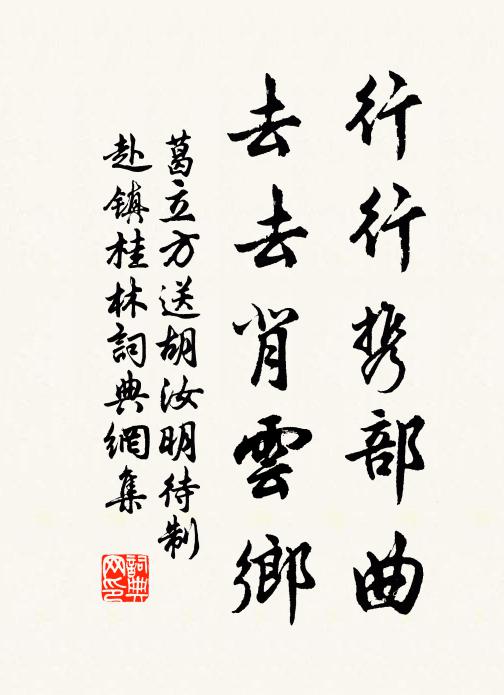 行行携部曲
去去背雲鄉
葛立方送胡汝明待制
赴鎮桂林詞典網集
詞典
网印